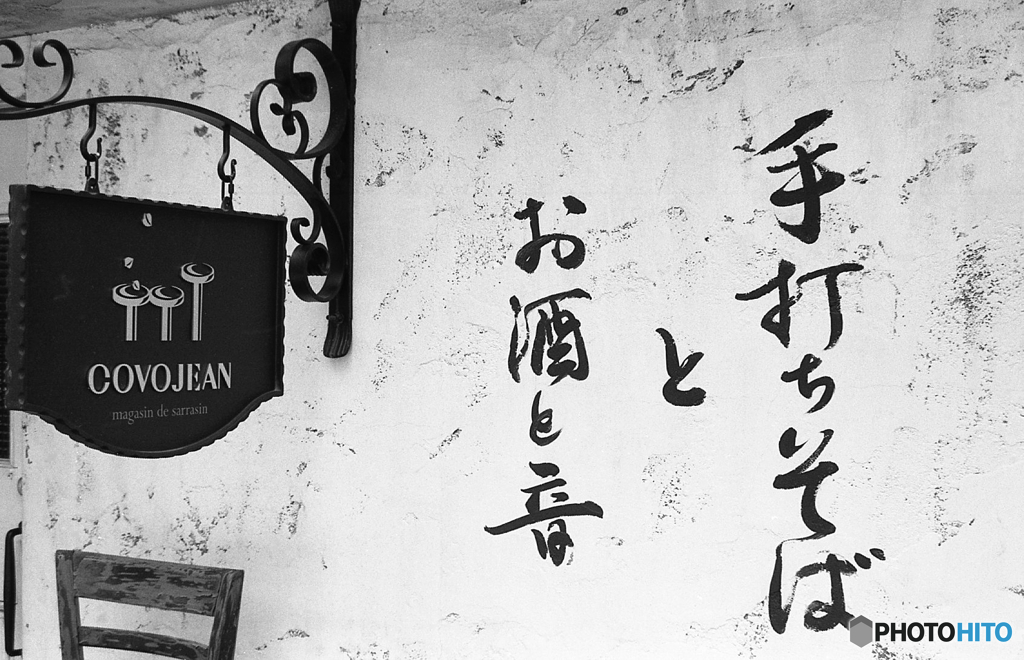 手打ちそば
と
お酒と音
COVOJEAN
magasin de sarrasin
PHOTOHITO